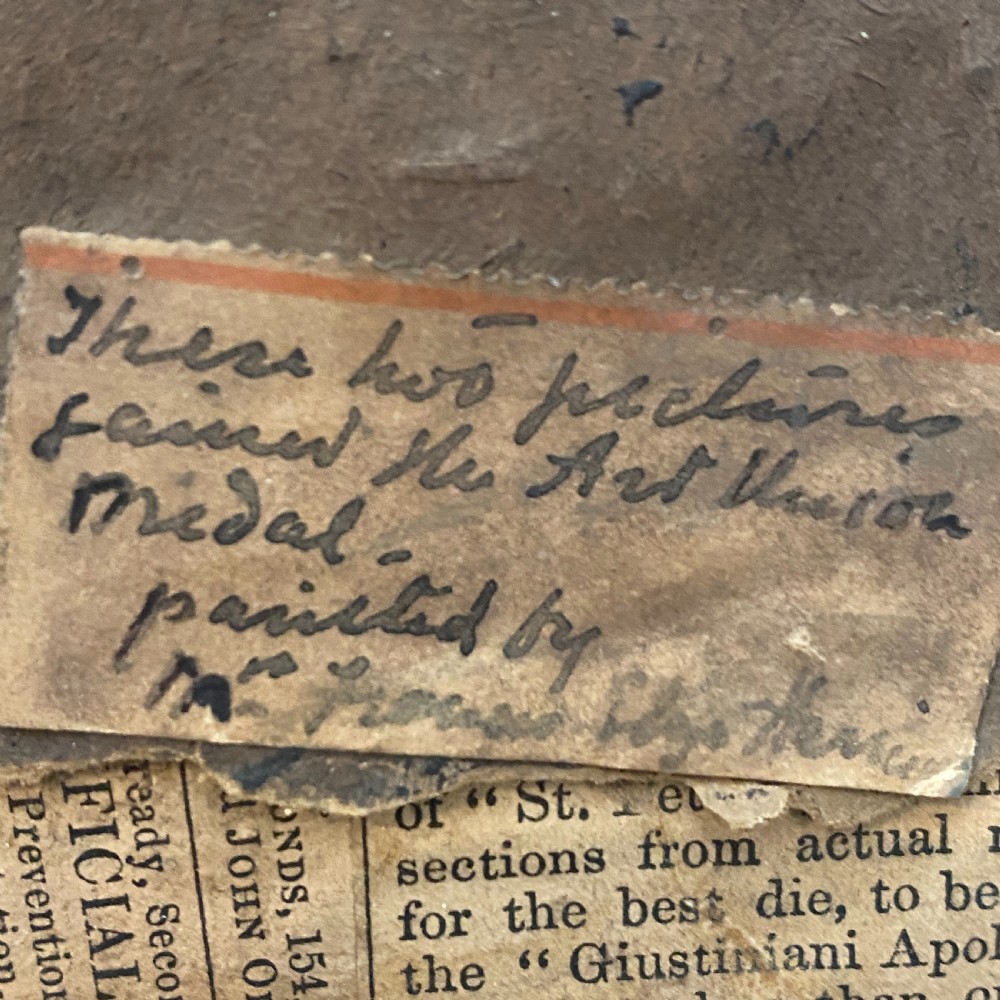 These two pictures
gained the Art Union
Medal.-
painted by
Mrs Frances
of "St. Pet
sections from actual
for the best die, to be
the "Giustiniani Apol
than
ONDS, 154
JOHN
ready, Seco
FICIAL
Prevention